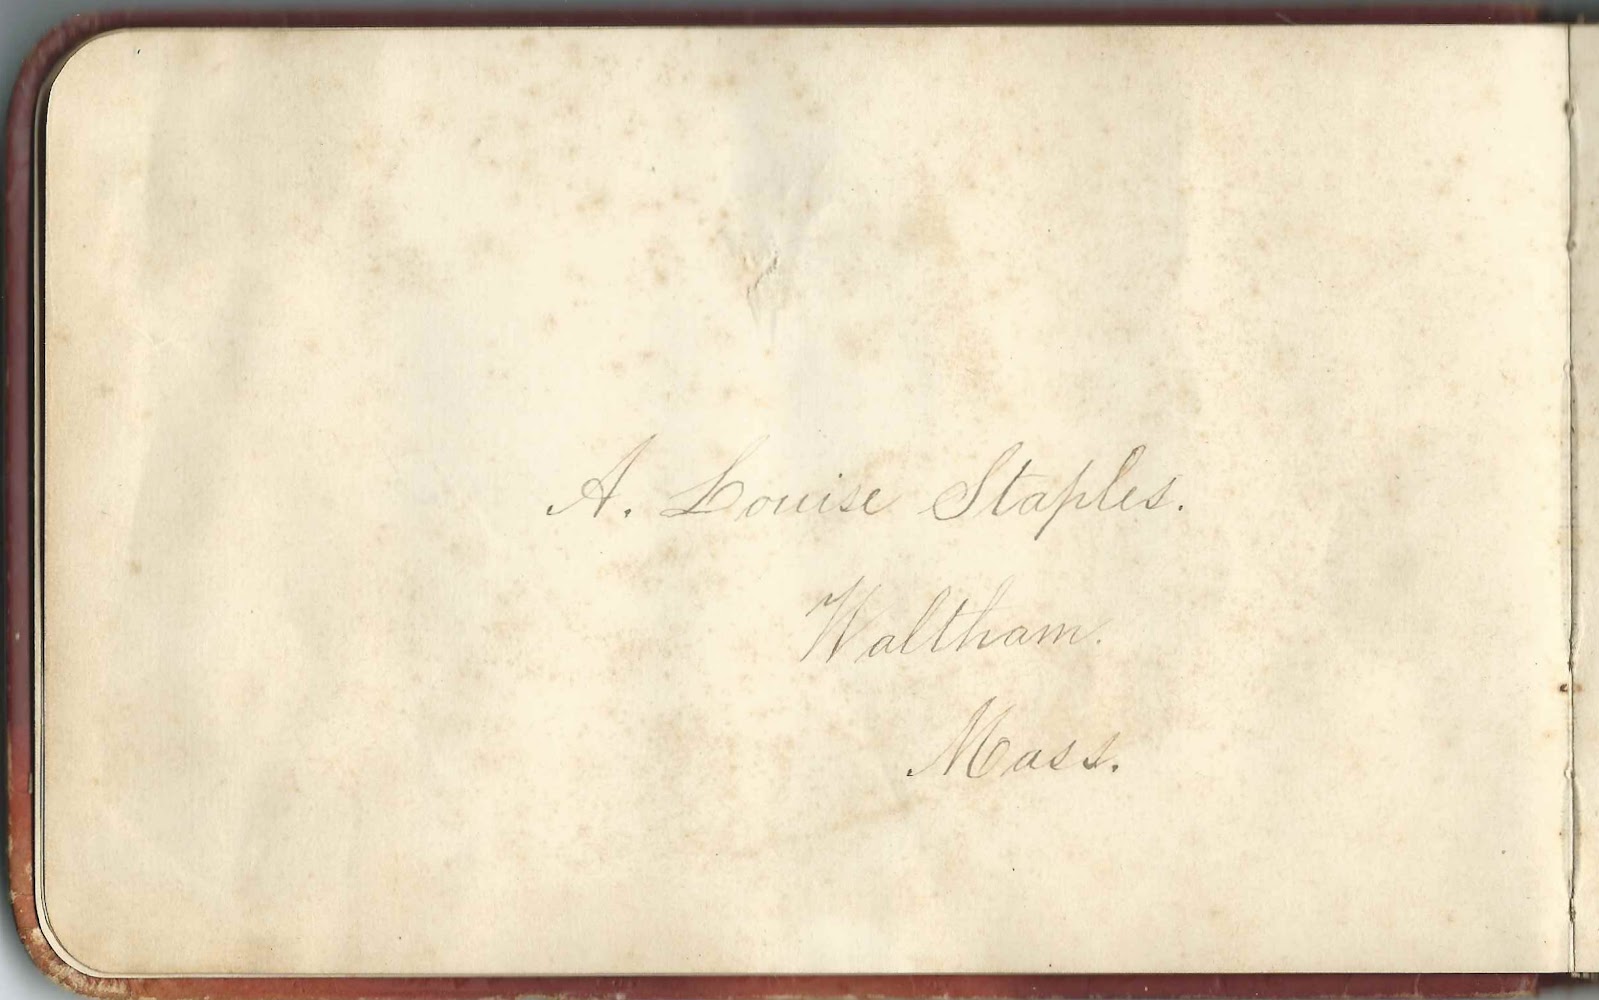 A. Louise Staples.
Waltham.
Mass.